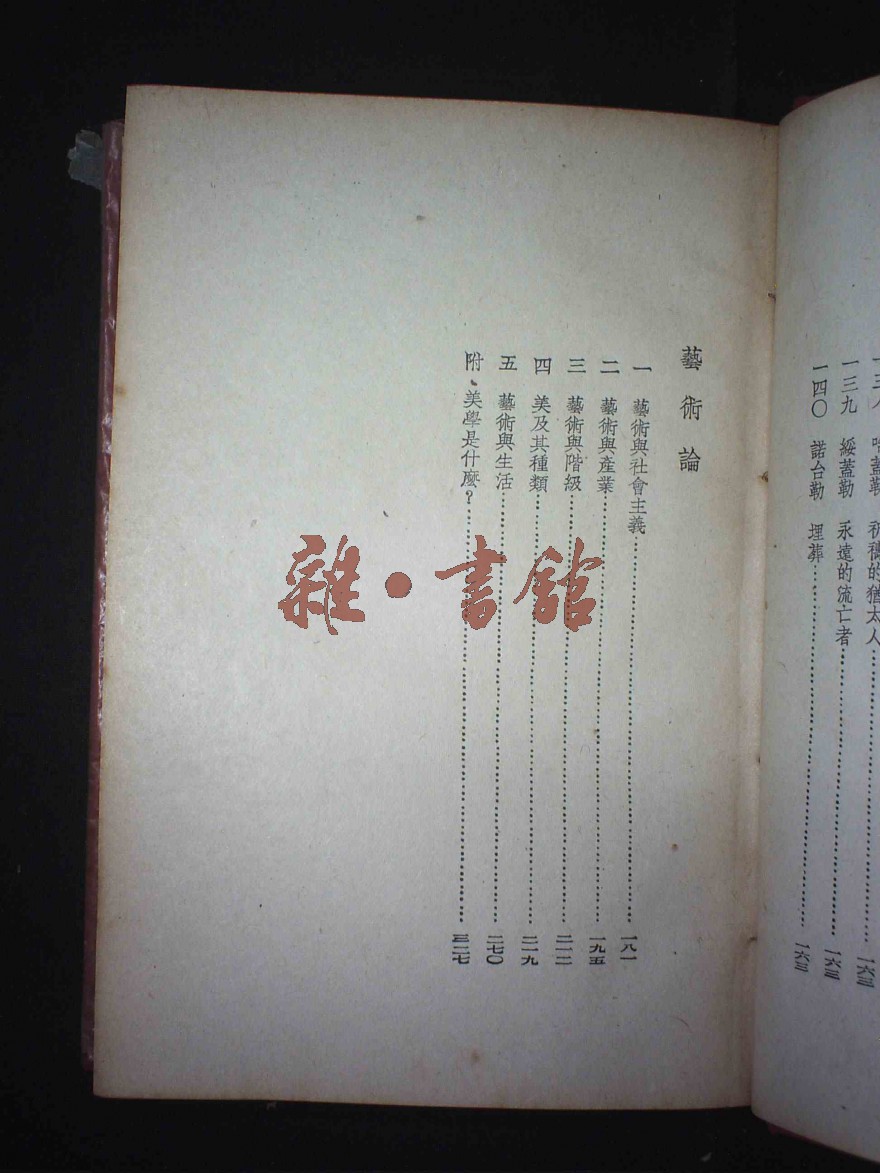 一三八 哈蓋勒 祈禱的猶太人……一六三
一三九 綏蓋勒 永遠的流亡者……一六三
一四〇 諾台勒 埋葬……一六三
藝術論
一 藝術與社會主義……一八一
二 藝術與產業……一九五
三 藝術與階級……二一二
四 美及其種類……二一九
五 藝術與生活……二七〇
附、美學是什麼？……三二七
雜·書館